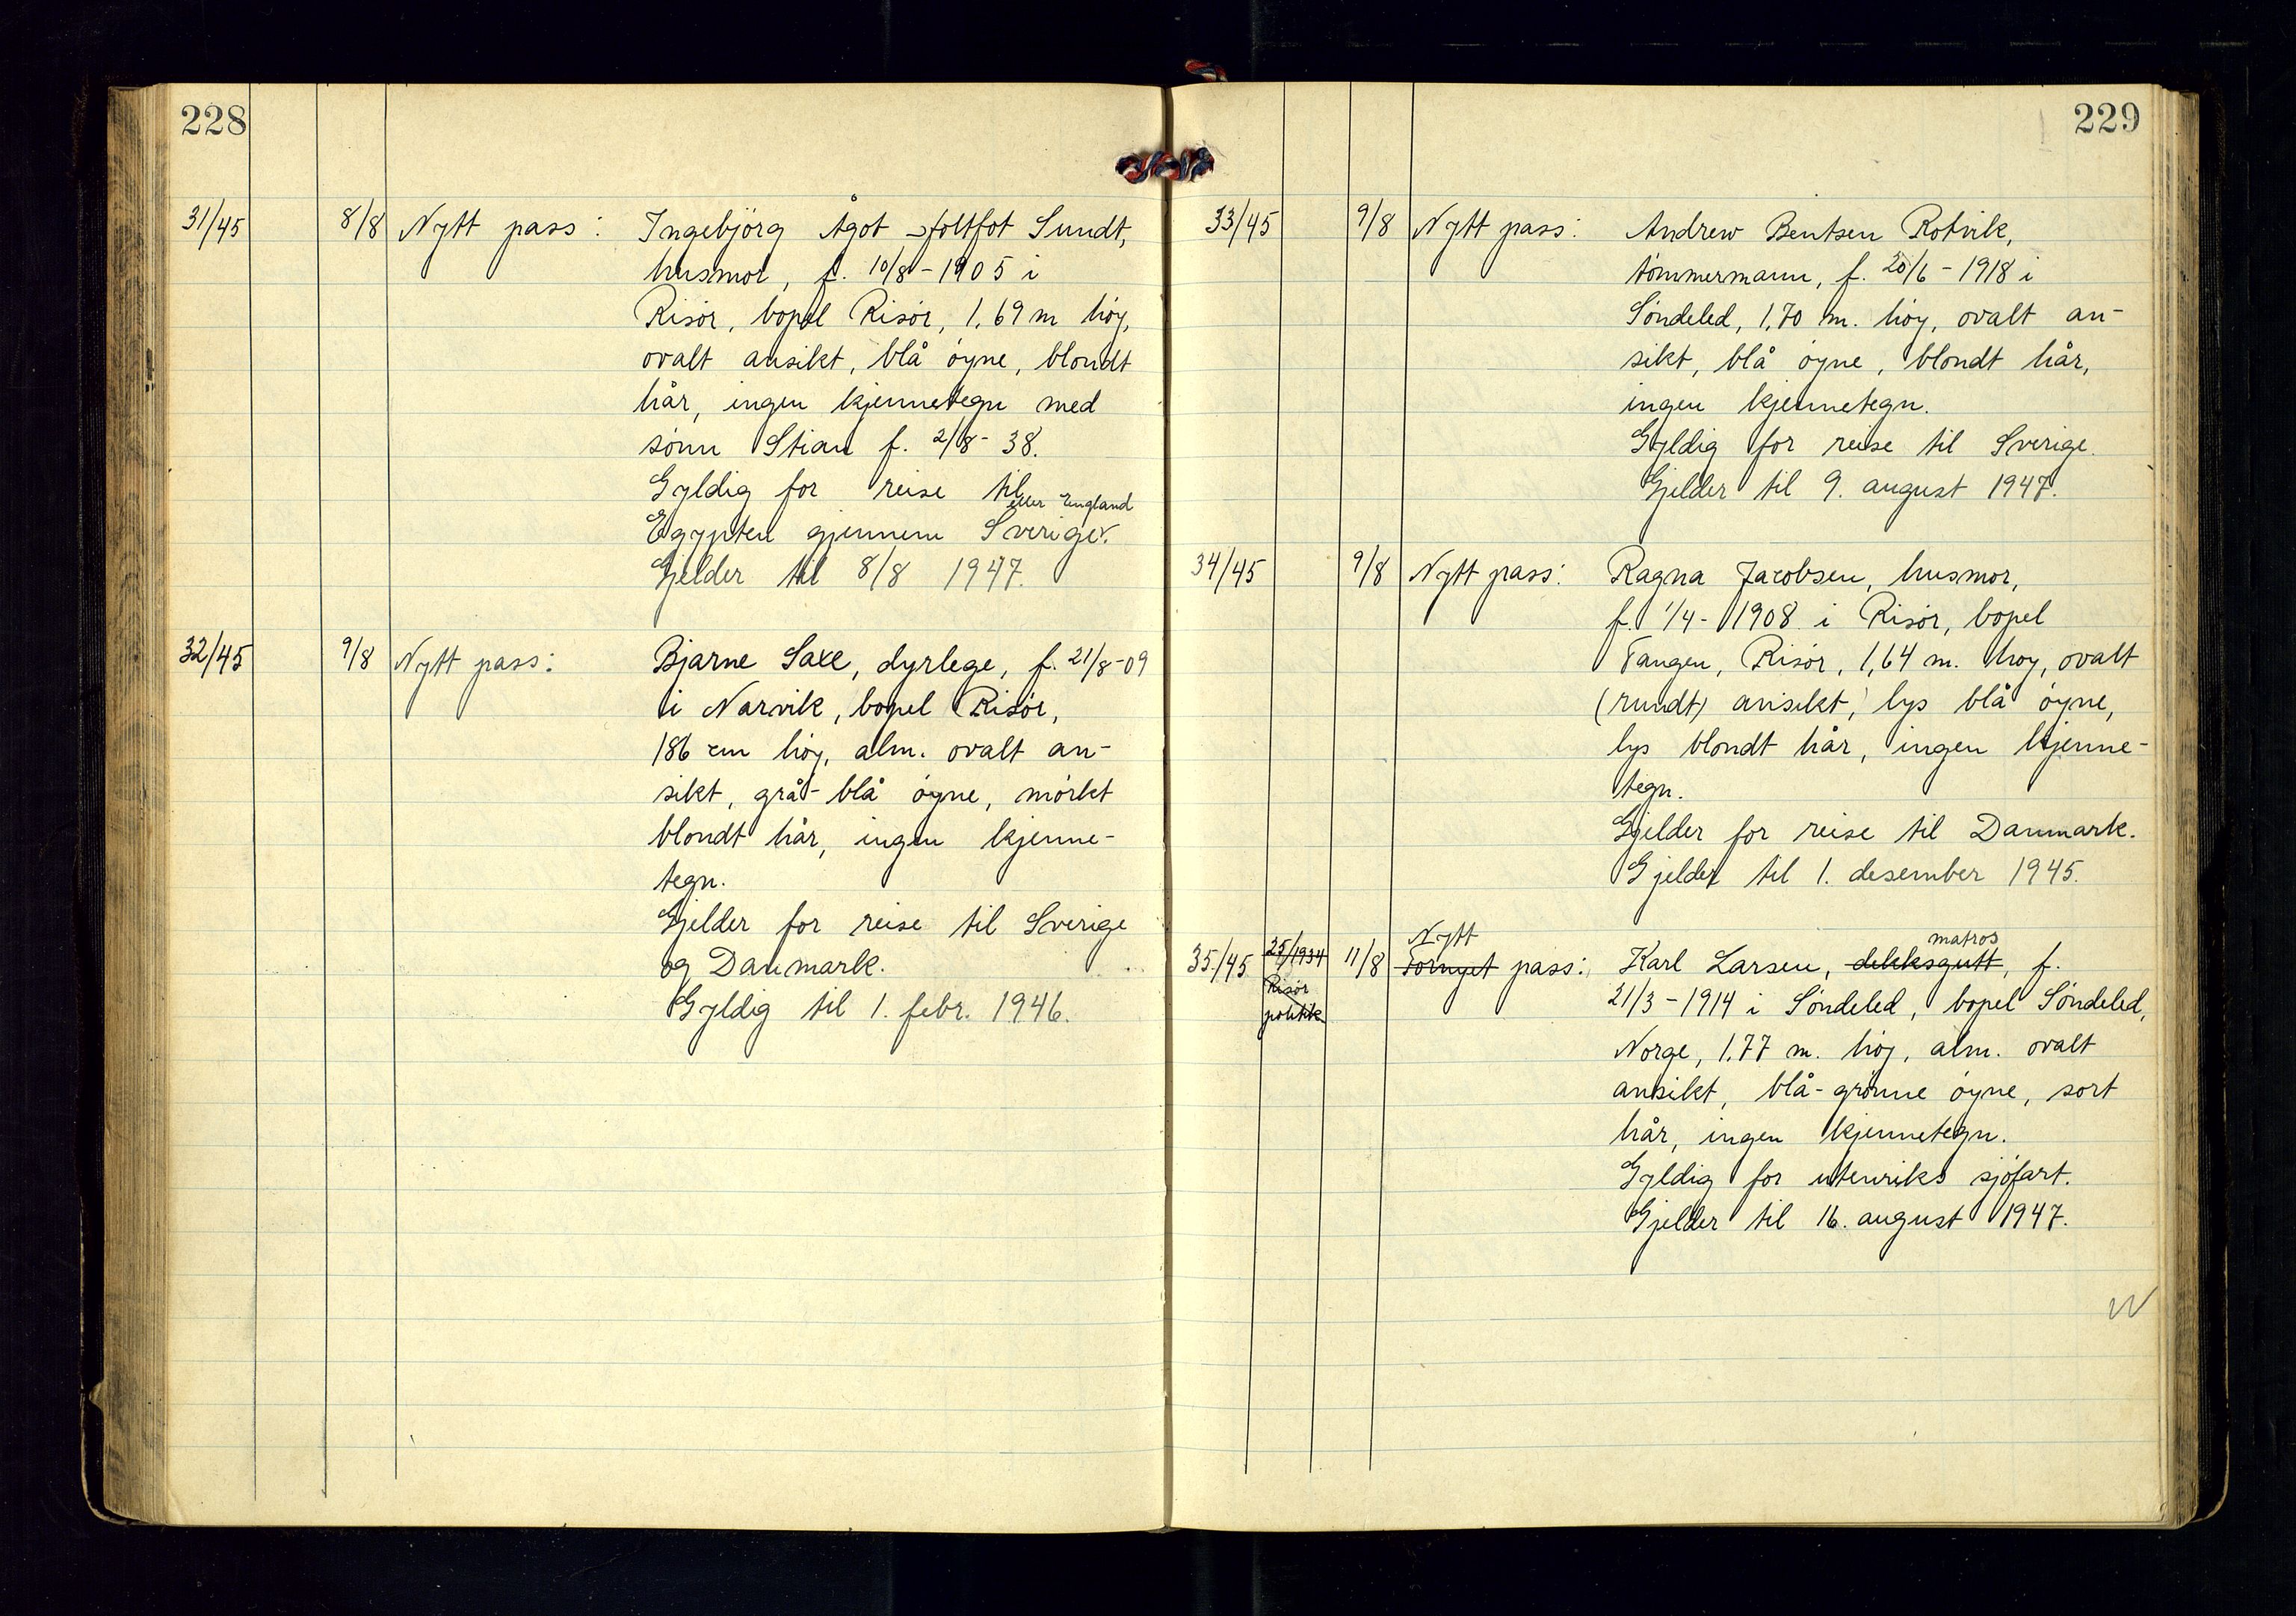 228
31/45 8/8 Nytt pass: Ingebjörg Ågot Sundt,
husmor, f. 10/8-1905 i
Risör, bopel Risör, 1,69 m höy,
ovalt ansikt, blå öyne, blondt
hår, ingen kjennetegn med
sönn Stian f. 2/8-38.
Gyldig for reise til
eller England
Egypten gjennem Sverige.
Gjelder til 8/8 1947.
32/45 9/8 Nytt pass: Bjarne Saxe, dyrlege, f. 21/8-09
i Narvik, bopel Risör,
186 cm höy, alm. ovalt an-
sikt, grå-blå öyne, mörkt
blondt hår, ingen kjenne-
tegn.
Gjelder for reise til Sverige
og Danmark.
Gyldig til 1. febr. 1946.
229
33/45 9/8 Nytt pass: Andrew Bentsen Rotvik,
tömmermann, f. 20/6-1918 i
Söndeled, 1,70 m. höy, ovalt an-
sikt, blå öyne, blondt hår,
ingen kjennetegn.
Gyldig for reise til Sverige.
Gjelder til 9. august 1947.
34/45 9/8 Nytt pass: Ragna Jacobsen, husmor,
f. 1/4-1908 i Risör, bopel
Tangen, Risör, 1,64 m. höy, ovalt
(rundt) ansikt, lys blå öyne,
lys blondt hår, ingen kjenne-
tegn.
Gjelder for reise til Danmark.
Gjelder til 1. desember 1945.
Nytt matros
35/45 25/1934 11/8 Fornyet pass: Karl Larsen, dekksgutt, f.
Risör
politik.
21/3-1914 i Söndeled, bopel Söndeled,
Norge, 1,77 m. höy, alm. ovalt
ansikt, blå-grönne öyne, sort
hår, ingen kjennetegn.
Gyldig for utenriks sjöfart.
Gjelder til 16. august 1947.